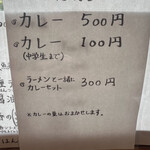 カレー 500円
カレー 100円
(中学生まで)
ラーメンと一緒に
カレーセット 300円
※カレーの量はおまかせします。